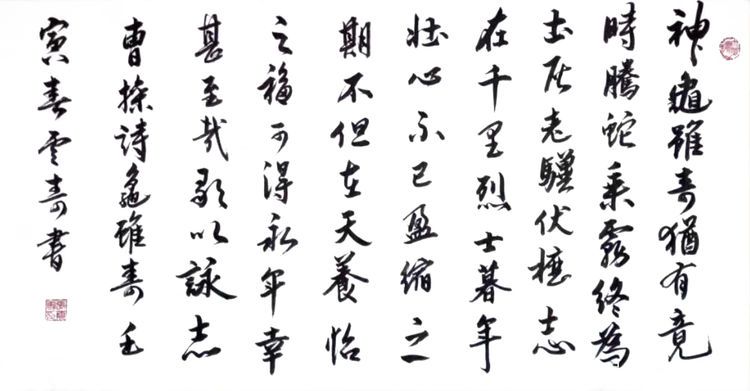 神龜雖壽猶有竟
時騰蛇乘霧終為
土灰老驥伏櫪志
在千里烈士暮年
壯心不已盈縮之
期不但在天養怡
之福可得永年幸
甚至哉歌以詠志
曹操詩龜雖壽壬
寅春雲壽書